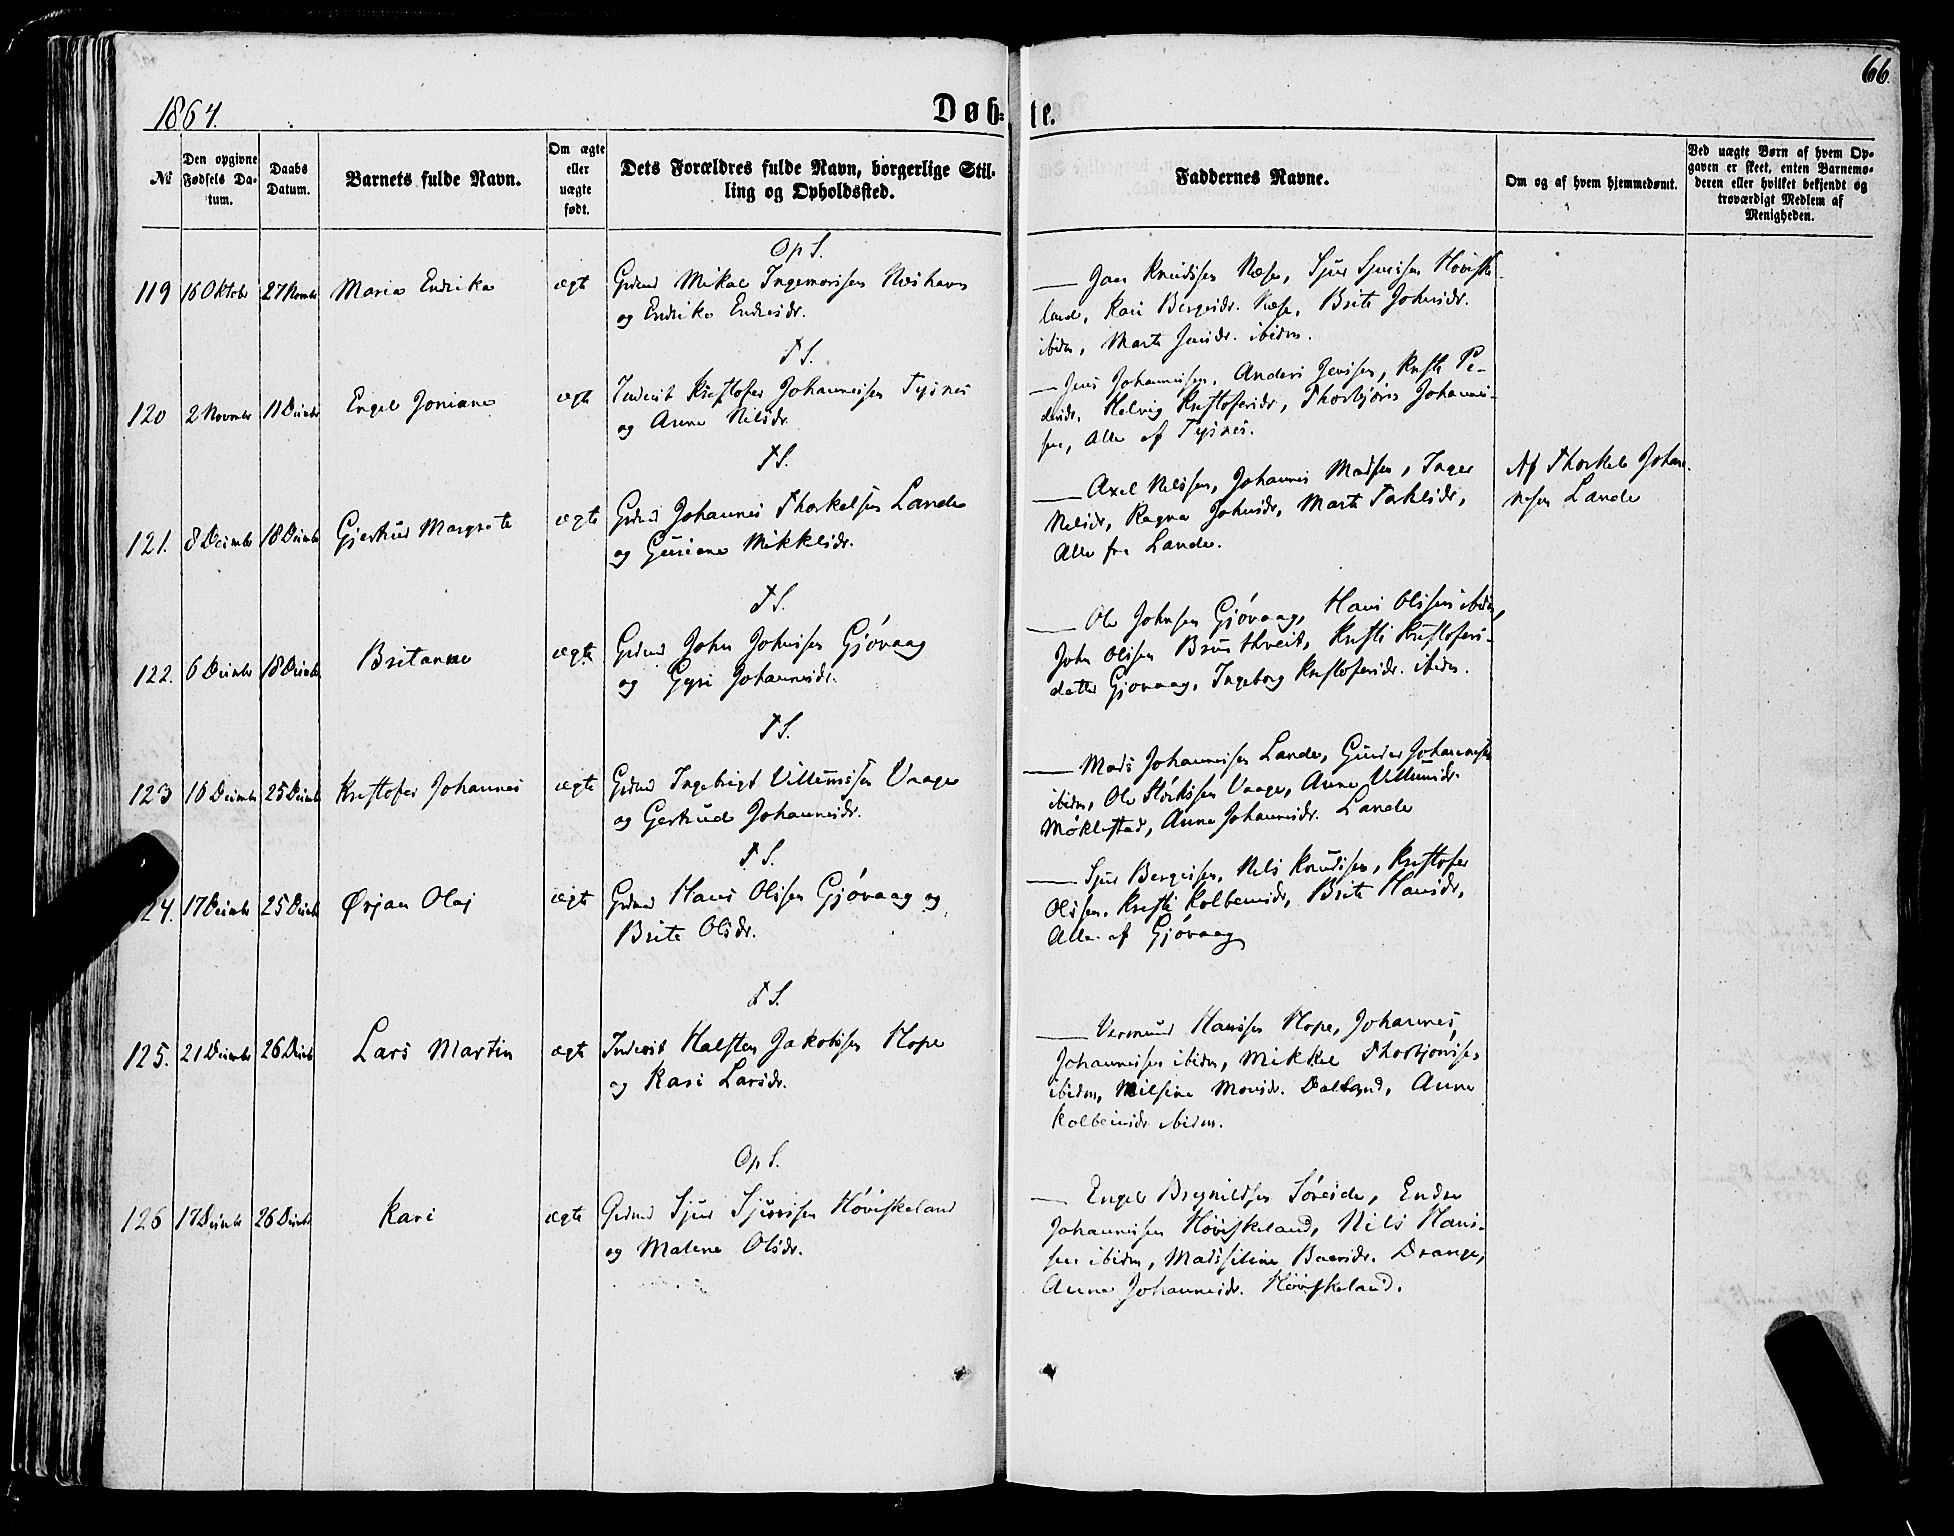 66
1864.
Døbte.
No
Den opgivne Fødsels Datum.
Daabs Datum.
Barnets fulde Navn.
Om ægte eller uægte født.
Dets Forældres fulde Navn, borgerlige Stilling og Opholdssted.
Faddernes Navne.
Om og af hvem hjemmedøbt.
Ved uægte Børn af hvem Opgaven er skeet, enten Barnemoderen eller hvilket bekjendt og troværdigt Medlem af Menigheden.
Op S.
119 16 Oktobr 27 Novmbr Maria Endrika ægt Grdmd Mikal Ingemorisen Næshavn
og Endrika Endresdr.
Jaen Knudssen Næse, Sjur Sjursen Høviske-
land, Kari Bergesdr. Næse, Brite Johnsdr.
ibidm, Marta Jensdr. ibidm.
T S.
120 2 Novmbr 11 Decmbr Engel Joniane ægt Inderst Kristofer Johannessen Tysnes
og Anna Nilsdr.
Jens Johannessen, Anders Jensen, Kristi Pe-
dersdr, Helvig Kristofersdr, Thorbjörn Johannes-
sen, Alle af Tysnes.
T S.
121. 8 Decmbr 18 Decmbr Gjertrud Margrete ægte Grdmd Johannes Thorkelsen Lande
og Guriane Mikkelsdr.
Axel Nelssen, Johannes Madsen, Inger
Nelsdr, Ragna Johnsdr, Marta Torkelsdr,
Alle fra Lande.
Af Thorkel Johan-
nesen Lande
T S.
122. 6 Decmbr 18 Decmbr Britanne ægte Grdmd John Johnsen Gjövaag
og Gyri Johannesdr.
Ole Johnsen Gjövaag, Hans Olssen ibidm,
John Olssen Bruthveit, Kristi Kristofers-
datter Gjövaag, Ingeborg Kristofersdr. ibidm.
T S.
123 16 Decmbr 25 Decmbr Kristofer Johannes ægte Grdmd Ingebrigt Villumssen Vaage
og Gertrud Johannesdr.
Mads Johannessen Lande, Gunder Johannessen
ibidm, Ole Störkssen Vaage, Anna Villumsdr.
Möklestad, Anna Johannesdr. Lande
T S.
124. 17 Decmbr 25 Decmbr Ørjan Olaj ægte Grdmd Hans Olssen Gjövaag og
Brite Olsdr.
Sjur Bergessen, Nils Knudssen, Kristofer
Olssen, Kristi Kolbensdr, Brite Hansdr,
Alle af Gjövaag
T S.
125. 21 Decmbr 26 Decmbr Lars Martin ægte Inderst Halsten Jakobssen Hope
og Kari Larsdr.
Vermund Hanssen Hope, Johannes
Johannessen ibidm, Mikkel Thorbjörnsen
ibidm, Milsine Monsdr. Dalland, Anna
Kolbensdr ibidm.
Op S.
126 17 Decmbr 26 Decmbr Kari ægte Grdmd Sjur Sjurssen Höviskeland
og Malene Olsdr.
Engel Brynildsen Söreide, Endre
Johannessen Höviskeland, Nils Hans-
sen ibidm, Madsseline Baarsdr. Drange,
Anna Johannesdr. Höviskeland.